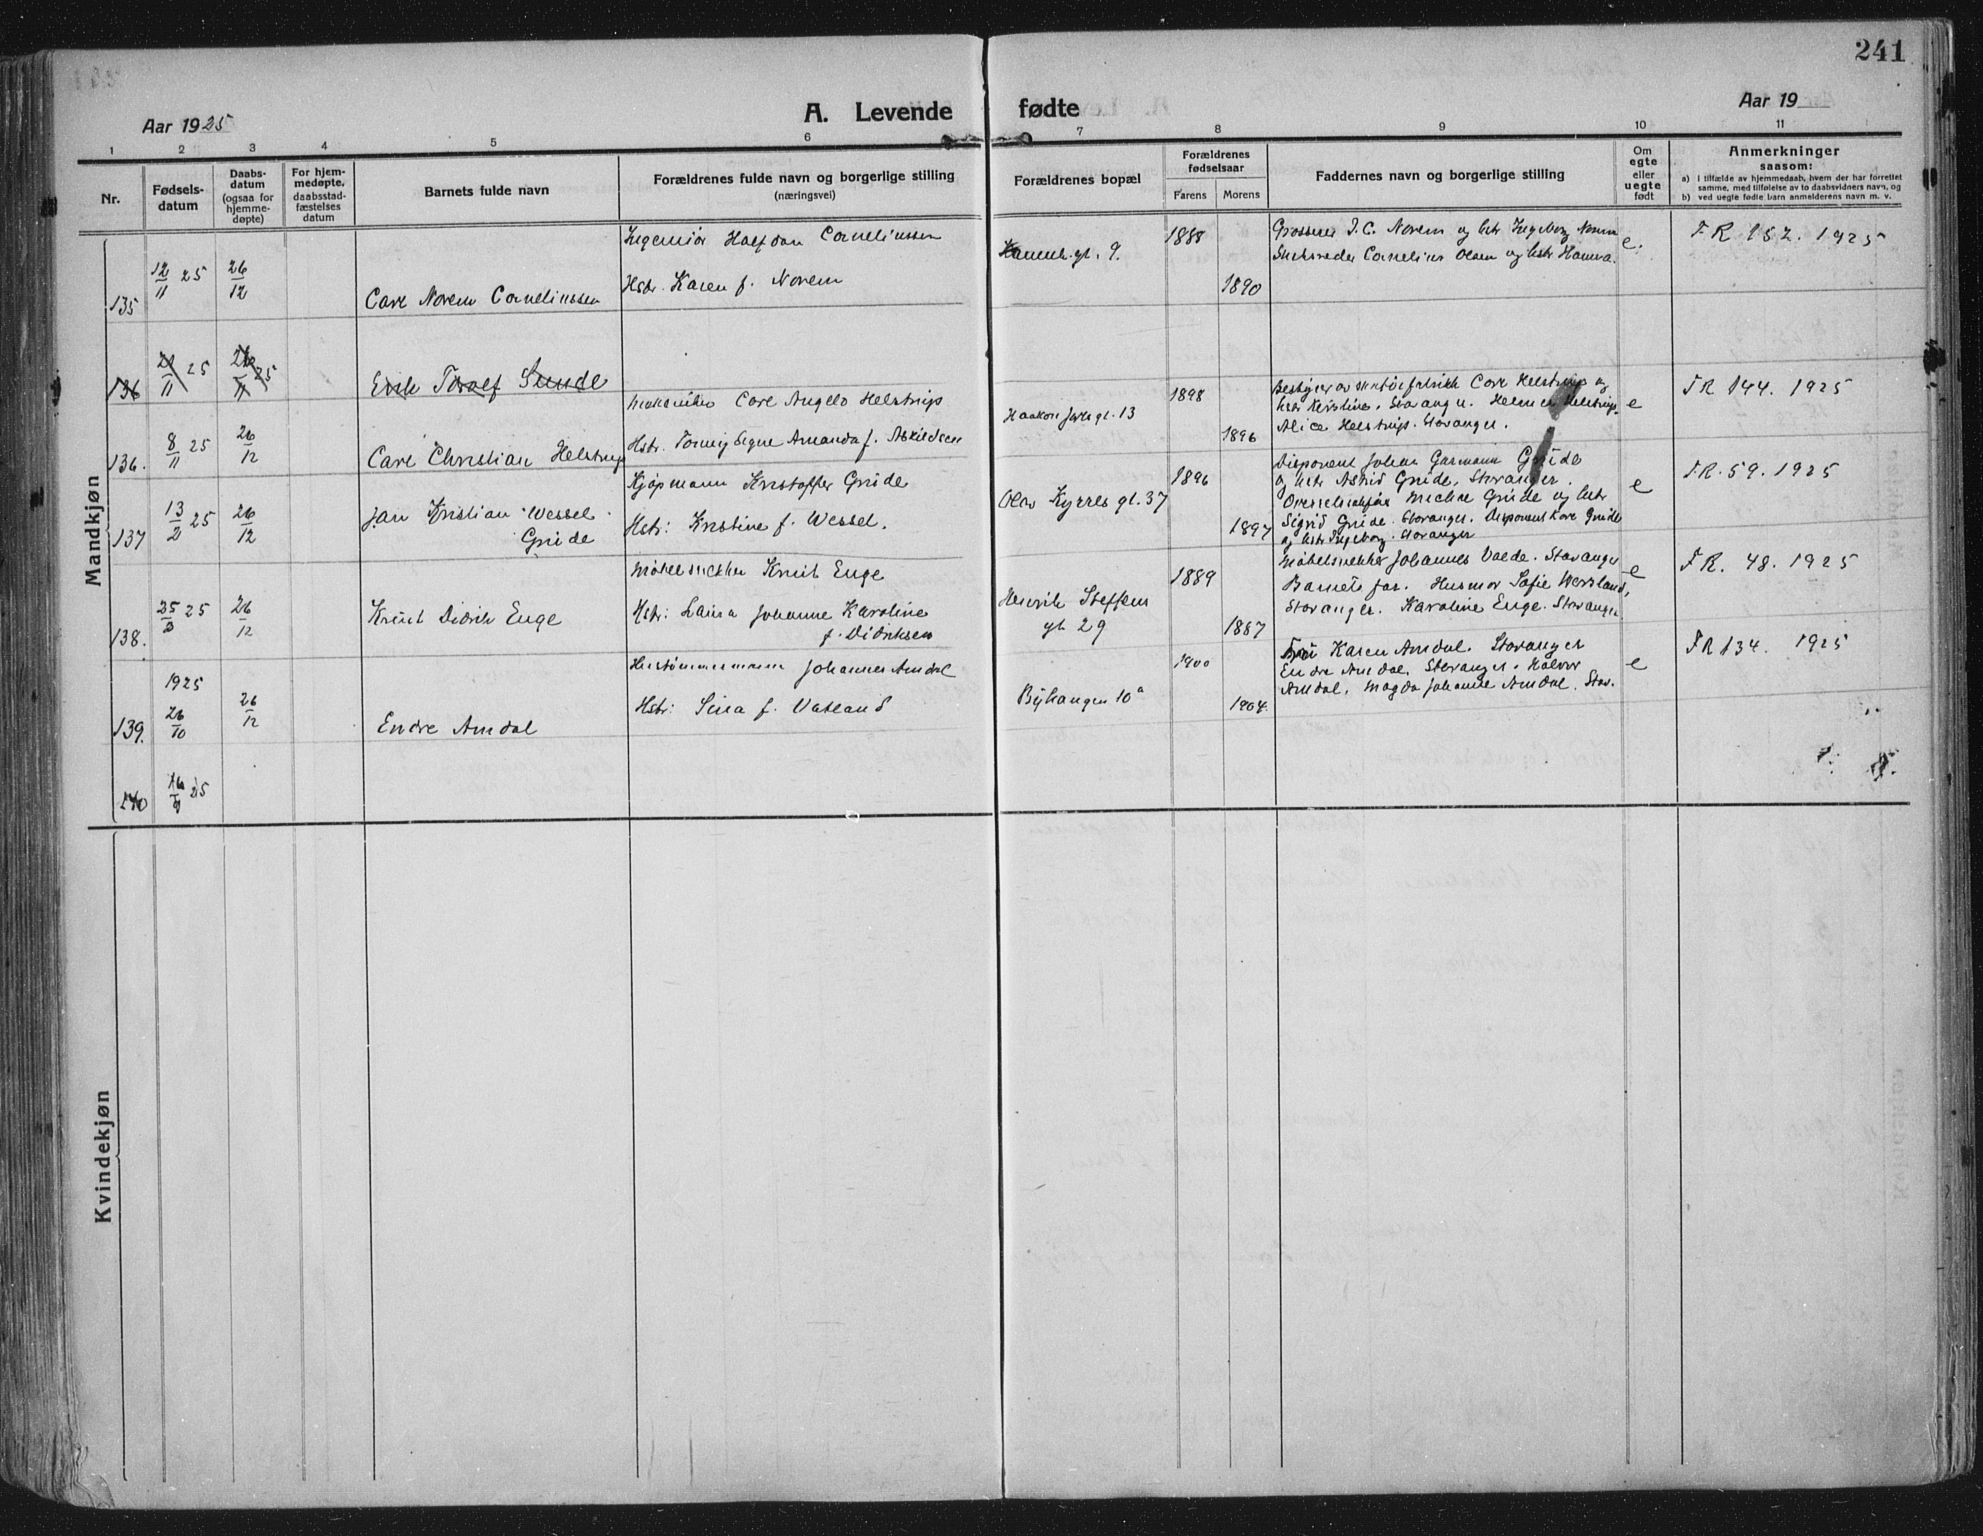 241
Aar 1925
A. Levende fødte
Aar 19
1 2 3 4 5 6 7 8 9 10 11
Nr.
Fødsels-
datum
Daabs-
datum
(ogsaa for
hjemme-
døpte)
For hjem-
medøpte,
daabsstad-
fæstelses
datum
Barnets fulde navn
Forældrenes fulde navn og borgerlige stilling
(næringsvei)
Forældrenes bopæl
Forældrenes
fødselsaar
Farens Morens
Faddernes navn og borgerlige stilling
Om
egte
eller
uegte
født
Anmerkninger
saasom:
a) i tilfælde av hjemmedaab, hvem der har forrettet
samme, med tilføielse av to daabsvidners navn, og
b) ved uegte fødte barn anmelderens navn m. v.
Mandkjøn
135 12/11 25 26/12
Carl Norem Corneliussen
Ingeniør Halfdan Corneliussen
Hstr. Karen f. Norem
gt. 9.
1888
1890
Grosserer I. C. Norem og hstr Ingeborg Norem
Cornelius Olsen og hstr Hanna.
e.
F R 152. 1925
136 25 25
Erik Toralf Sunde
136. 8/11 25 26/12
Carl Christian Helstrup
Mekaniker Carl Angelo Helstrup
Hstr. Signe Amanda f. Askildsen
Haakon Jarls gt. 13
1898
1896
Carl Helstrup og
hstr Kirstine. Stavanger. Helmer Helstrup.
Alice Helstrup. Stavanger.
e
F R 144. 1925
137 13/2 25 26/12
Jan Kristian Wessel
Grude
Kjøpmann Kristoffer Grude
Hstr: Kristine f. Wessel.
Olav Kyrres gt. 37
1896
1897
Disponent Johan Garmann Grude
og hstr Astrid Grude, Stavanger.
Grude og hstr
Sigrid Grude. Stavanger. Disponent Kåre Grude
og hstr Ingeborg. Stavanger
e
F.R. 59. 1925
138. 25/3 25 26/12
Knut Didrik Enge
Møbelsnekker Knut Enge
Hstr: Laura Johanne Karoline
f. Didriksen
Henrik Steffens
gt 29
1889
1887
Møbelsnekker Johannes Valde. Stavanger
Barnets far. Husmor Sofie Wersland,
Stavanger. Karoline Enge. Stavanger
e
F R. 48. 1925
139. 1925 26/10 26/12
Endre Amdal
Hustømmermann Johannes Amdal
Hstr: Sina f. Vatland
Byhaugen 10a
1900
1904.
Fru Karen Amdal. Stavanger
Endre Amdal, Stavanger. Halvor
Amdal, Magda Johanne Amdal. Stav.
e
F R 134. 1925
140 25
Kvindekjøn